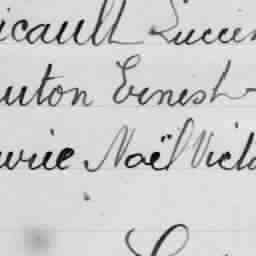 icault Lucien
uton Ernest
urie Noël Victo